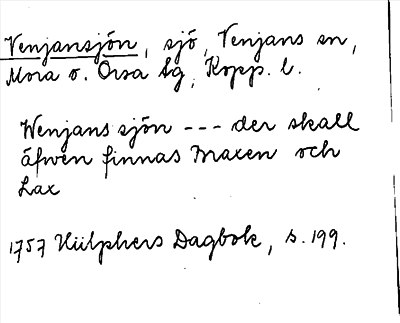 Venjansjön, sjö, Venjans sn,
Mora o. Orsa tg, Kopp. l.
Wenjans sjön --- der skall
äfwen finnas Maxen och
Lax
1757 Hülphers Dagbok, s. 199.